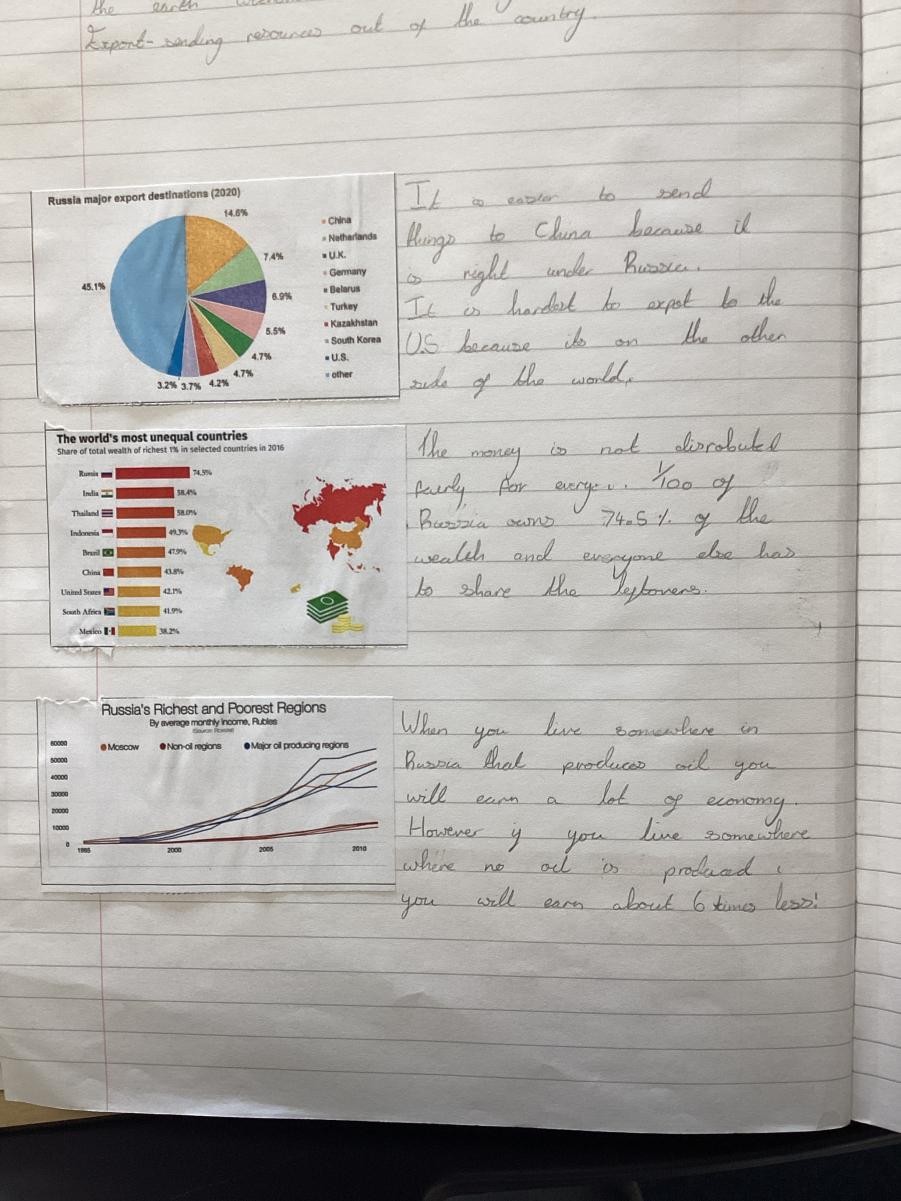 the earth
Export- sending resources out of the country.
Russia major export destinations (2020)
14.6%
7.4%
6.9%
5.5%
4.7%
4.7%
4.2%
3.7%
3.2%
45.1%
China
Netherlands
U.K.
Germany
Belarus
Turkey
Kazakhstan
South Korea
U.S.
other
It is easier to send
things to China because it
is right under Russia.
It is hardest to expot to the
US because its on the other
side of the world.
The world's most unequal countries
Share of total wealth of richest 1% in selected countries in 2016
Russia 74.5%
India 58.4%
Thailand 58.0%
Indonesia 49.3%
Brazil 47.9%
China 43.8%
United States 42.1%
South Africa 41.9%
Mexico 38.2%
The money is not disrobuted
fairly for
1/100 of
Russia owns 74.5% of the
wealth and everyone else has
to share the leftovers.
Russia's Richest and Poorest Regions
By average monthly income, Rubles
Moscow Non-oil regions Major oil producing regions
60000
50000
40000
30000
20000
10000
0
1995 2000 2005 2010
When you live somewhere in
Russia that produces oil you
will earn a lot of economy.
However if you live somewhere
where no oil is produced
you will earn about 6 times less!